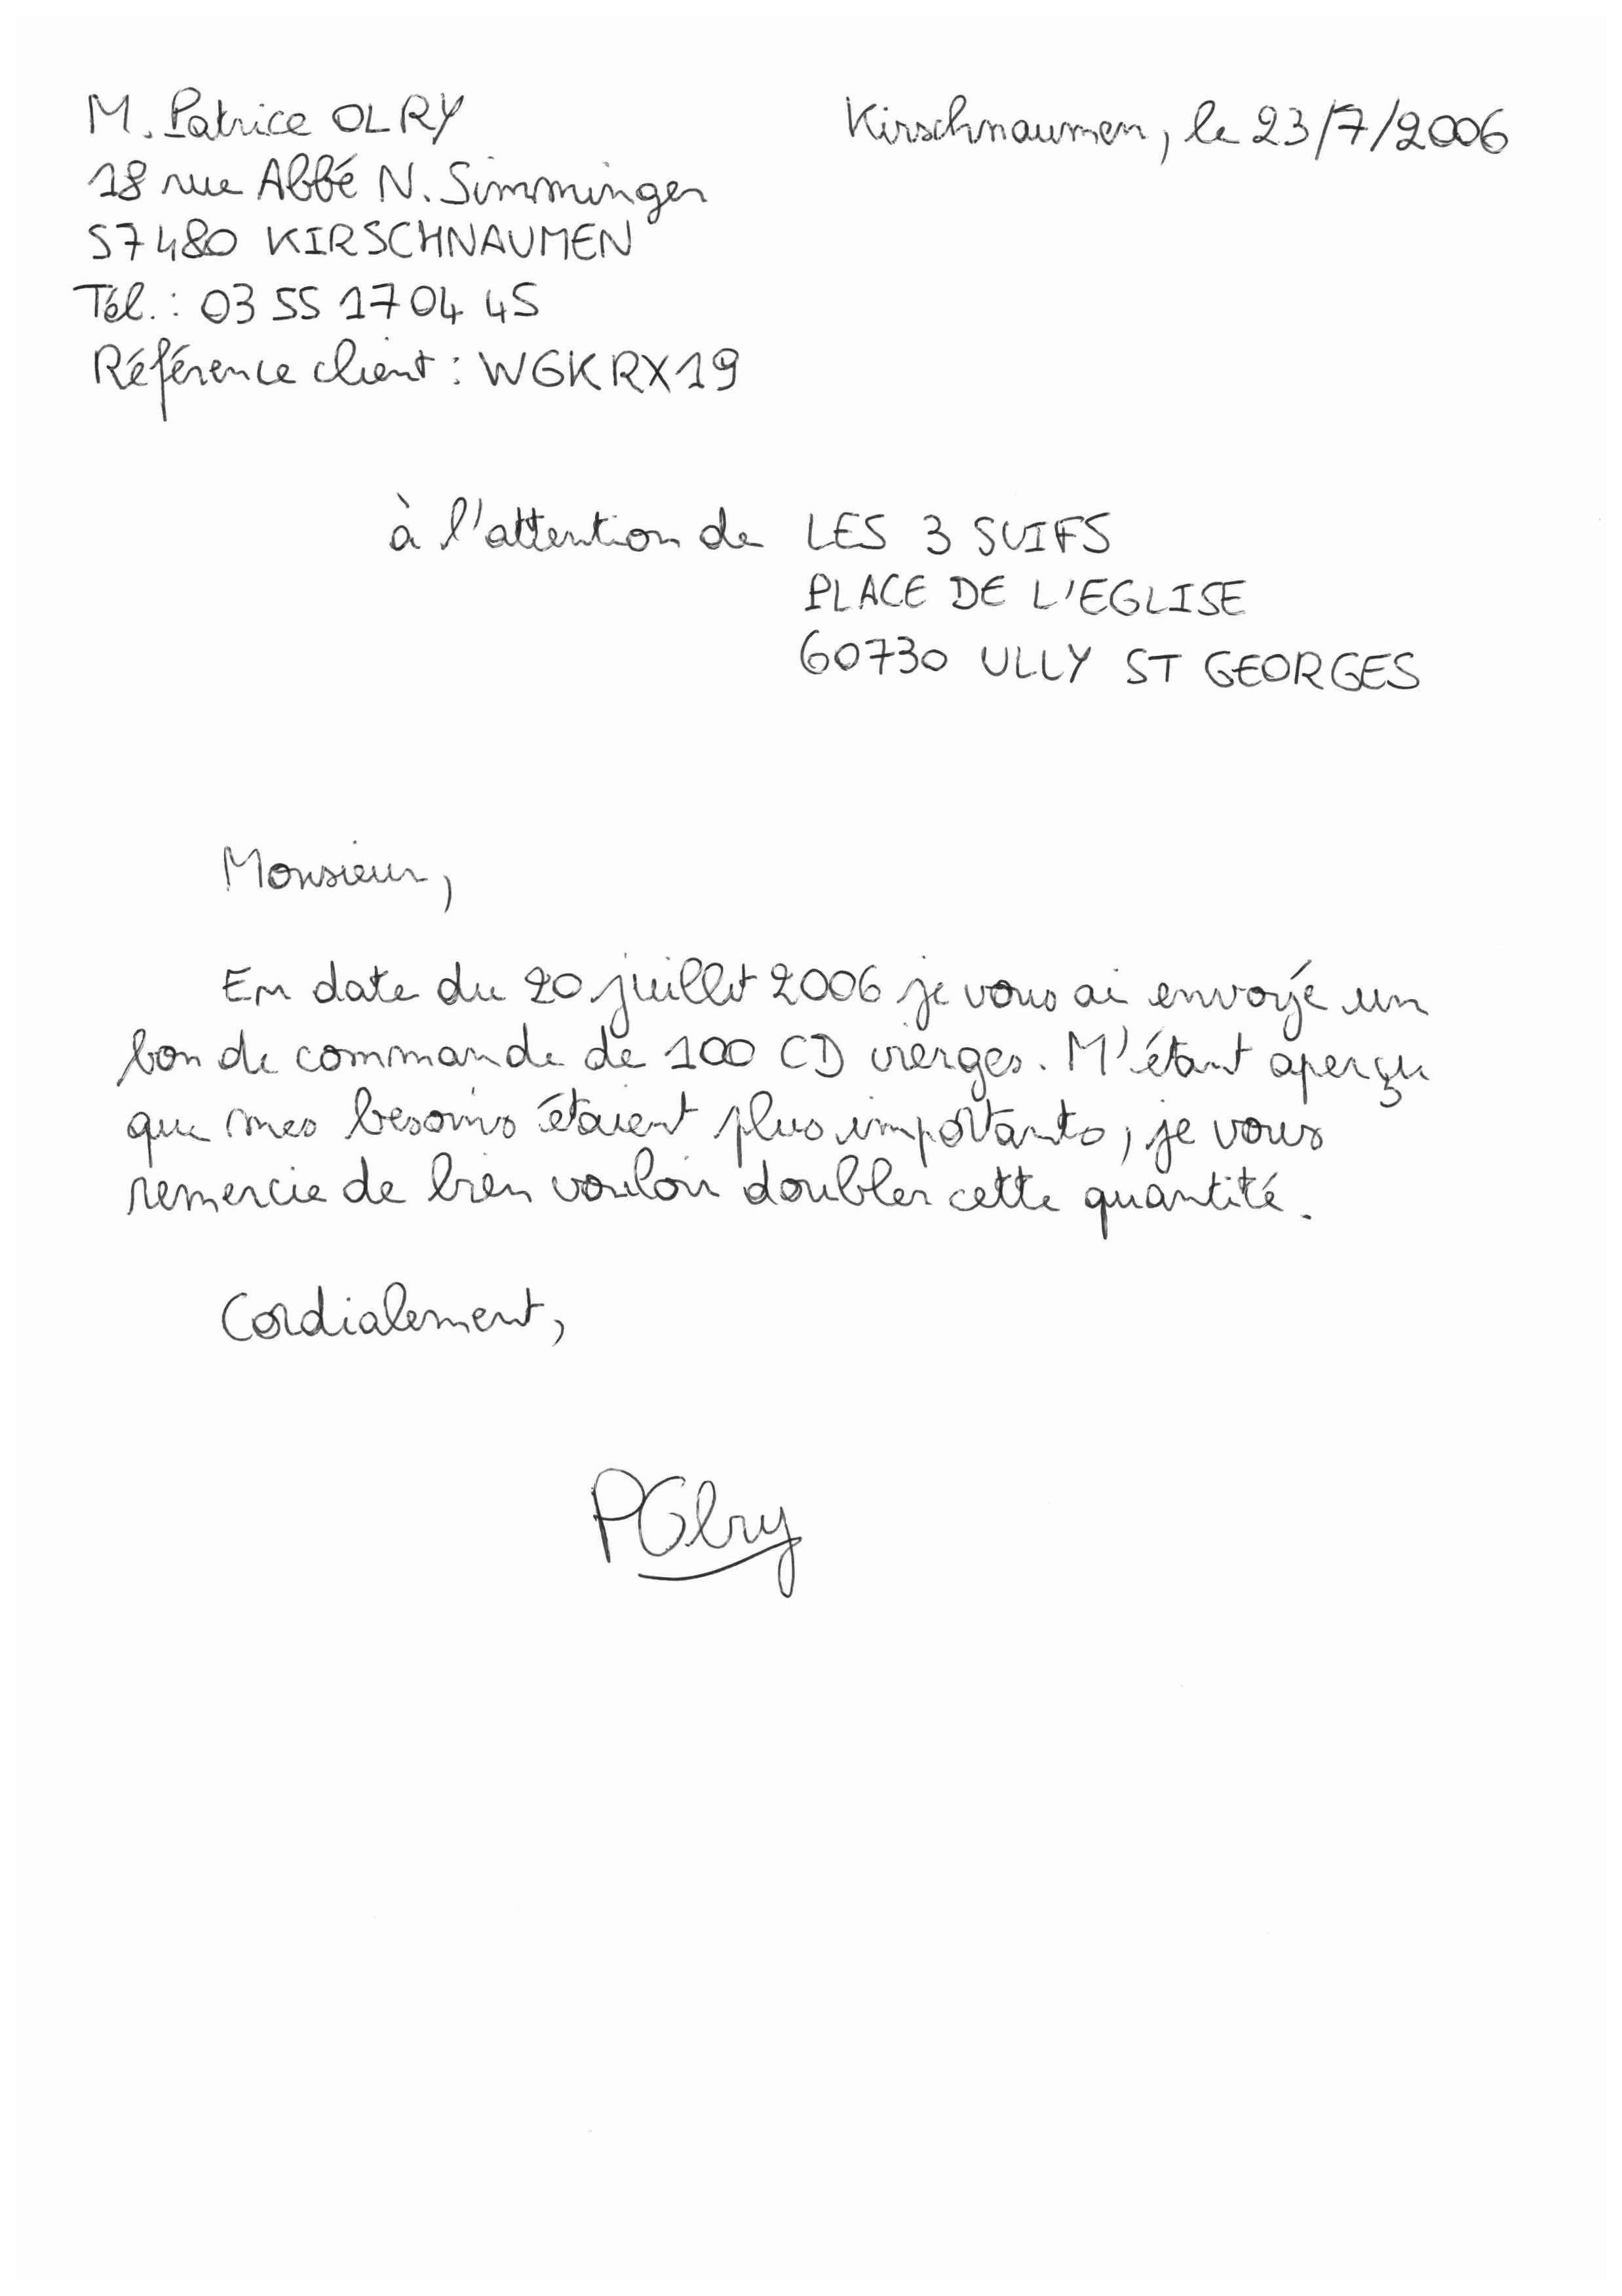 M. Patrice OLRY
18 rue Abbé N. Simminger
57480 KIRSCHNAUMEN
Tél. : 03 55 17 04 45
Référence client : WGKRX19
Kirschnaumen, le 23/7/2006
à l'attention de LES 3 SUIFS
PLACE DE L'EGLISE
60730 ULLY ST GEORGES
Monsieur,
En date du 20 juillet 2006 je vous ai envoyé un
bon de commande de 100 CD vierges. M'étant aperçu
que mes besoins étaient plus importants, je vous
remercie de bien vouloir doubler cette quantité.
Cordialement,
POlry